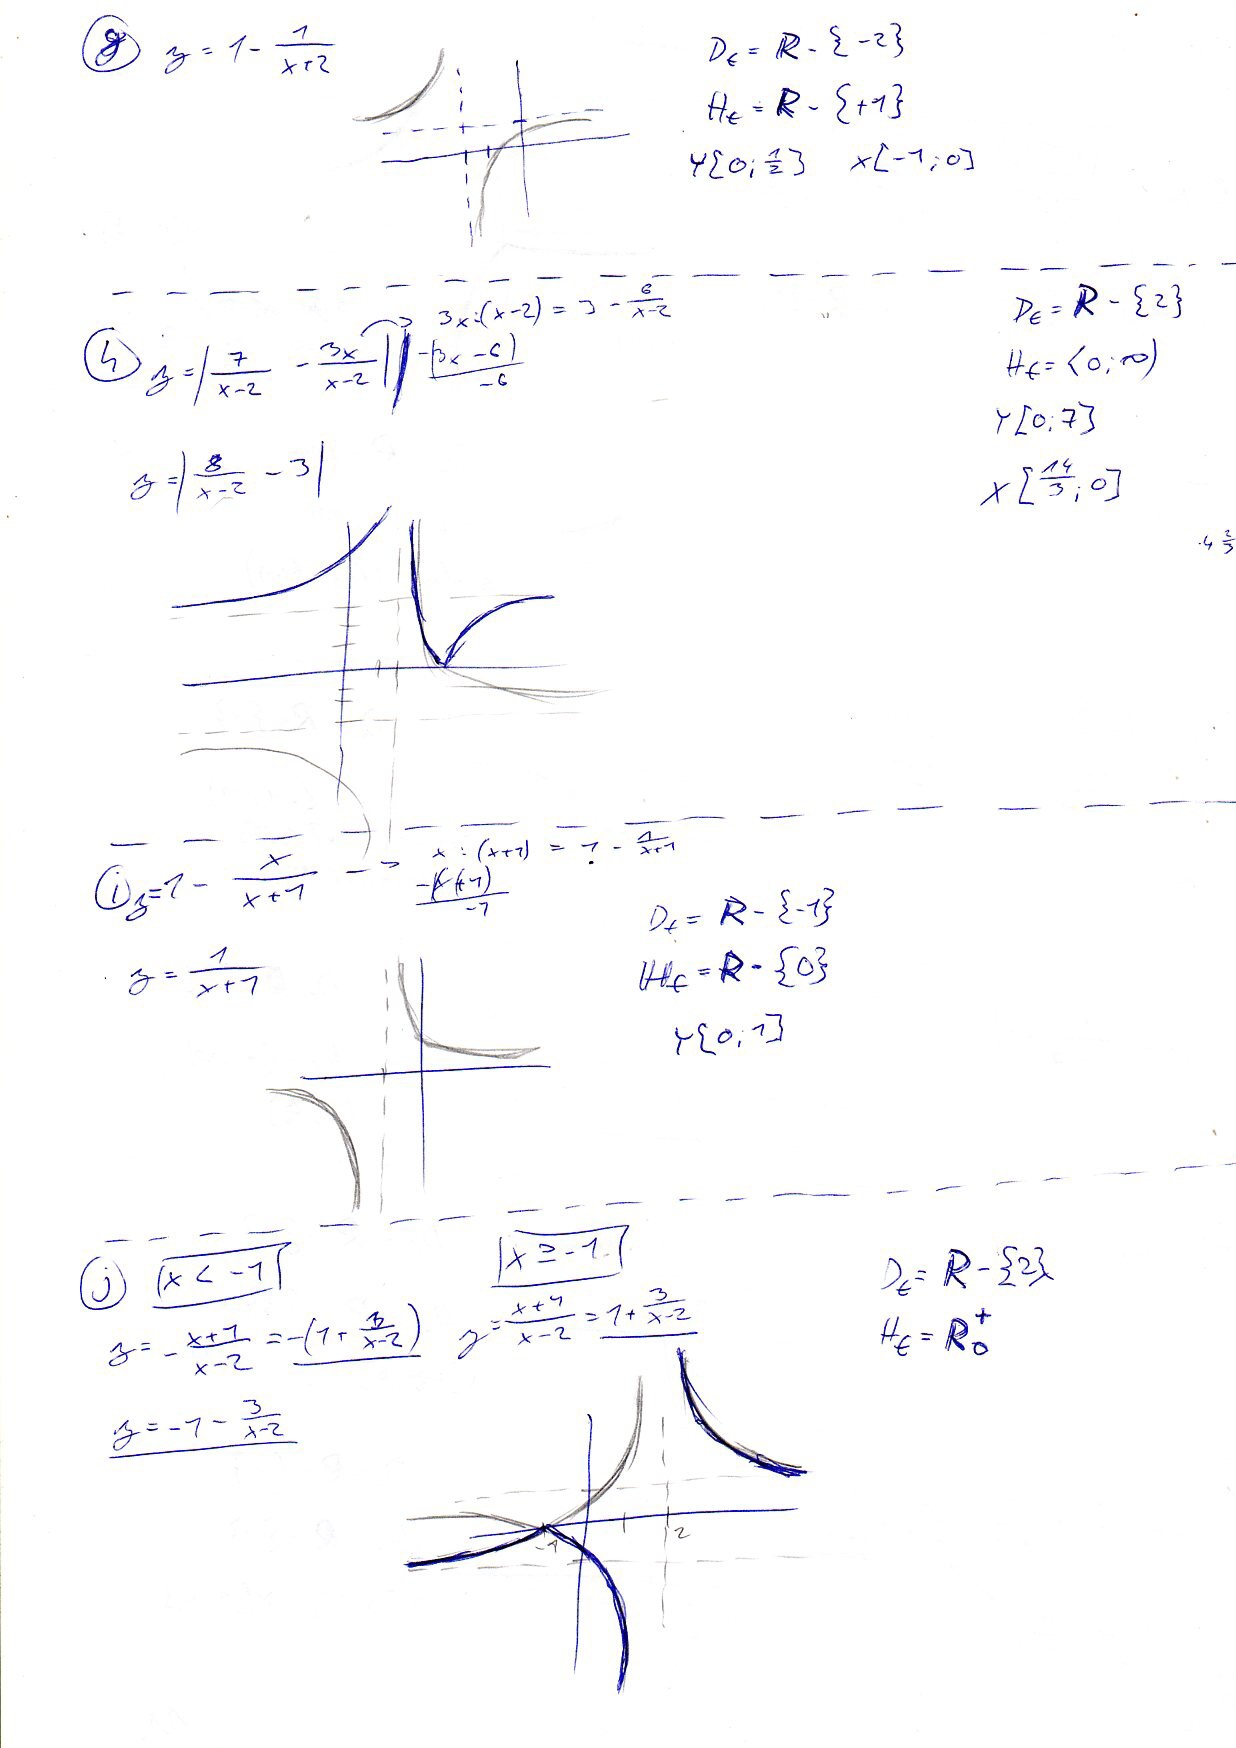 g) y = 1 - 1/(x+2)
D_f = R - {-2}
H_f = R - {+1}
Y[0; 1/2] X[-1; 0]
3x:(x-2) = 3 - 6/(x-2)
h) y = |7/(x-2) - 3x/(x-2)|
-(3x-6)
-6
y = |8/(x-2) - 3|
D_f = R - {2}
H_f = <0; ∞)
Y[0; 7]
X[14/3; 0]
4 2/3
i) y = 1 - x/(x+1) -> x:(x+1) = 1 - 1/(x+1)
-(x+1)
-1
y = 1/(x+1)
D_f = R - {-1}
H_f = R - {0}
Y[0; 1]
j) x < -1
x ≥ -1
y = -(x+1)/(x-2) = -(1 + 3/(x-2))
y = (x+1)/(x-2) = 1 + 3/(x-2)
y = -1 - 3/(x-2)
D_f = R - {2}
H_f = R_0^+
-1
2